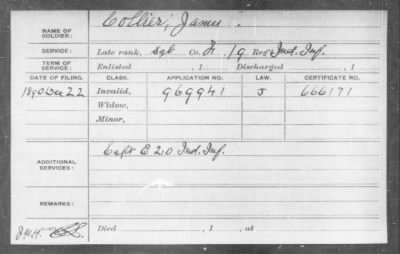 NAME OF SOLDIER: Collier, James.
SERVICE: Late rank, Sgt Co. H, 19 Reg't Ind. Inf.
TERM OF SERVICE: Enlisted , 1 Discharged , 1
DATE OF FILING. CLASS. APPLICATION NO. LAW. CERTIFICATE NO.
1890 Dec 22 Invalid, 969941 J 666171
Widow,
Minor,
ADDITIONAL SERVICES: Capt E 20 Ind. Inf.
REMARKS:
Died , 1 , at